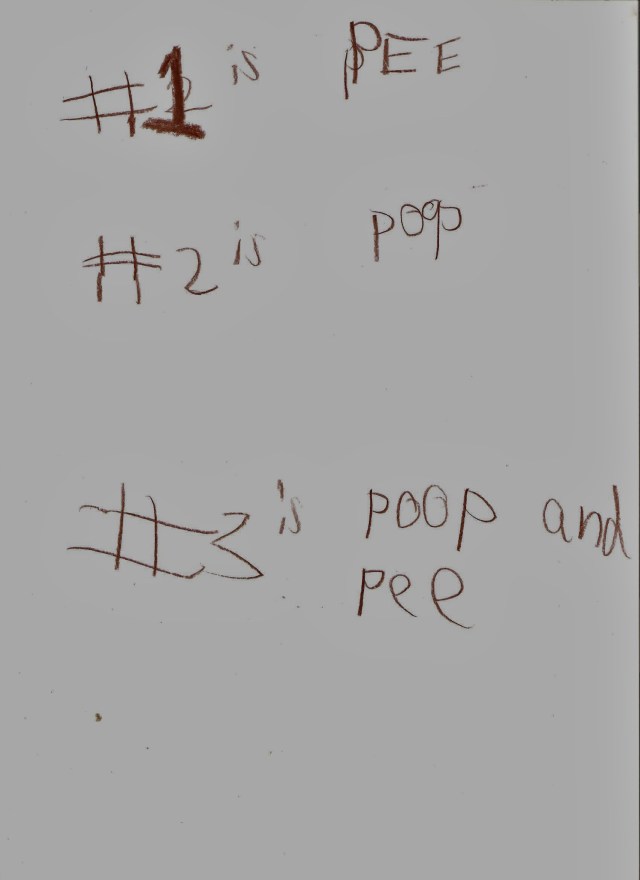 #1 is PEE
#2 is poop
#3 is poop and
pee